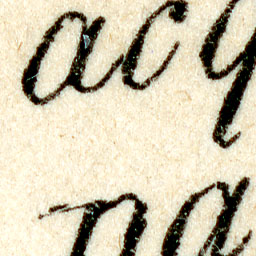 acq
na